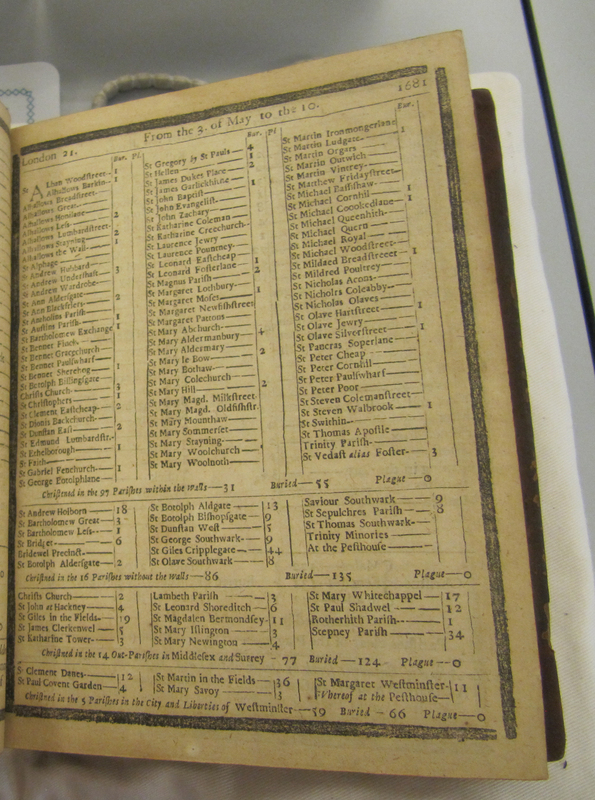 London 21. From the 3. of May to the 10. 1681
Bur. Pl.
St ALban Woodstreet — 1
Alhallows Barkin — 1
Alhallows Breadstreet
Alhallows Great
Alhallows Honilane
Alhallows Less — 2
Alhallows Lumbardstreet
Alhallows Stayning — 2
Alhallows the Wall — 1
St Alphage
St Andrew Hubbard
St Andrew Undershaft — 3
St Andrew Wardrobe
St Ann Aldersgate
St Ann Blackfriers — 2
St Antholins Parish
St Austins Parish — 1
St Bartholomew Exchange — 1
St Bennet Finck
St Bennet Gracechurch
St Bennet Paulswharf
St Bennet Sherehog — 1
St Botolph Billingsgate
Christs Church — 3
St Christophers — 1
St Clement Eastcheap — 2
St Dionis Backchurch
St Dunstan East — 2
St Edmund Lumbardstr.
St Ethelborough — 1
St Faith
St Gabriel Fenchurch — 1
St George Botolphlane
Bur. Pl.
St Gregory by St Pauls — 4
St Hellen — 1
St James Dukes Place — 2
St James Garlickhithe
St John Baptist — 1
St John Evangelist
St John Zachary
St Katharine Coleman
St Katharine Creechurch
St Laurence Jewry
St Laurence Pountney
St Leonard Eastcheap — 1
St Leonard Fosterlane — 2
St Magnus Parish
St Margaret Lothbury — 1
St Margaret Moses
St Margaret Newfishstreet
St Margaret Pattons
St Mary Abchurch
St Mary Aldermanbury — 4
St Mary Aldermary
St Mary le Bow — 2
St Mary Bothaw
St Mary Colechurch
St Mary Hill — 2
St Mary Magd. Milkstreet
St Mary Magd. Oldfishstr.
St Mary Mounthaw
St Mary Sommerset
St Mary Stayning
St Mary Woolchurch
St Mary Woolnoth
Bur.
St Martin Ironmongerlane
St Martin Ludgate — 1
St Martin Orgars
St Martin Outwich
St Martin Vintrey
St Matthew Fridaystreet
St Michael Bassishaw
St Michael Cornhil — 1
St Michael Crookedlane — 1
St Michael Queenhith
St Michael Quern
St Michael Royal
St Michael Woodstreet
St Mildred Breadstreet — 1
St Mildred Poultrey
St Nicholas Acons
St Nicholas Coleabby
St Nicholas Olaves
St Olave Hartstreet — 1
St Olave Jewry
St Olave Silverstreet — 1
St Pancras Soperlane
St Peter Cheap
St Peter Cornhil
St Peter Paulswharf
St Peter Poor
St Steven Colemanstreet
St Steven Walbrook — 1
St Swithin
St Thomas Apostle
Trinity Parish
St Vedast alias Foster — 3
Christned in the 97 Parishes within the walls — 31 Buried — 55 Plague — 0
St Andrew Holborn — 18
St Bartholomew Great — 3
St Bartholomew Less — 1
St Bridget — 6
Bridewel Precinct
St Botolph Aldersgate — 2
St Botolph Aldgate — 13
St Botolph Bishopsgate — 9
St Dunstan West — 5
St George Southwark — 9
St Giles Cripplegate — 44
St Olave Southwark — 8
Saviour Southwark — 9
St Sepulchres Parish — 8
St Thomas Southwark
Trinity Minories
At the Pesthouse
Christned in the 16 Parishes without the walls — 86 Buried — 135 Plague — 0
Christs Church — 2
St John at Hackney — 4
St Giles in the Fields — 19
St James Clerkenwel — 5
St Katharine Tower — 3
Lambeth Parish — 3
St Leonard Shoreditch — 6
St Magdalen Bermondsey — 11
St Mary Islington — 3
St Mary Newington — 4
St Mary Whitechappel — 17
St Paul Shadwel — 12
Rotherhith Parish — 1
Stepney Parish — 34
Christned in the 14 Out-Parishes in Middlesex and Surrey — 77 Buried — 124 Plague — 0
St Clement Danes — 12
St Paul Covent Garden — 4
St Martin in the Fields — 36
St Mary Savoy — 3
St Margaret Westminster — 11
Whereof at the Pesthouse
Christned in the 5 Parishes in the City and Liberties of Westminster — 59 Buried — 66 Plague — 0